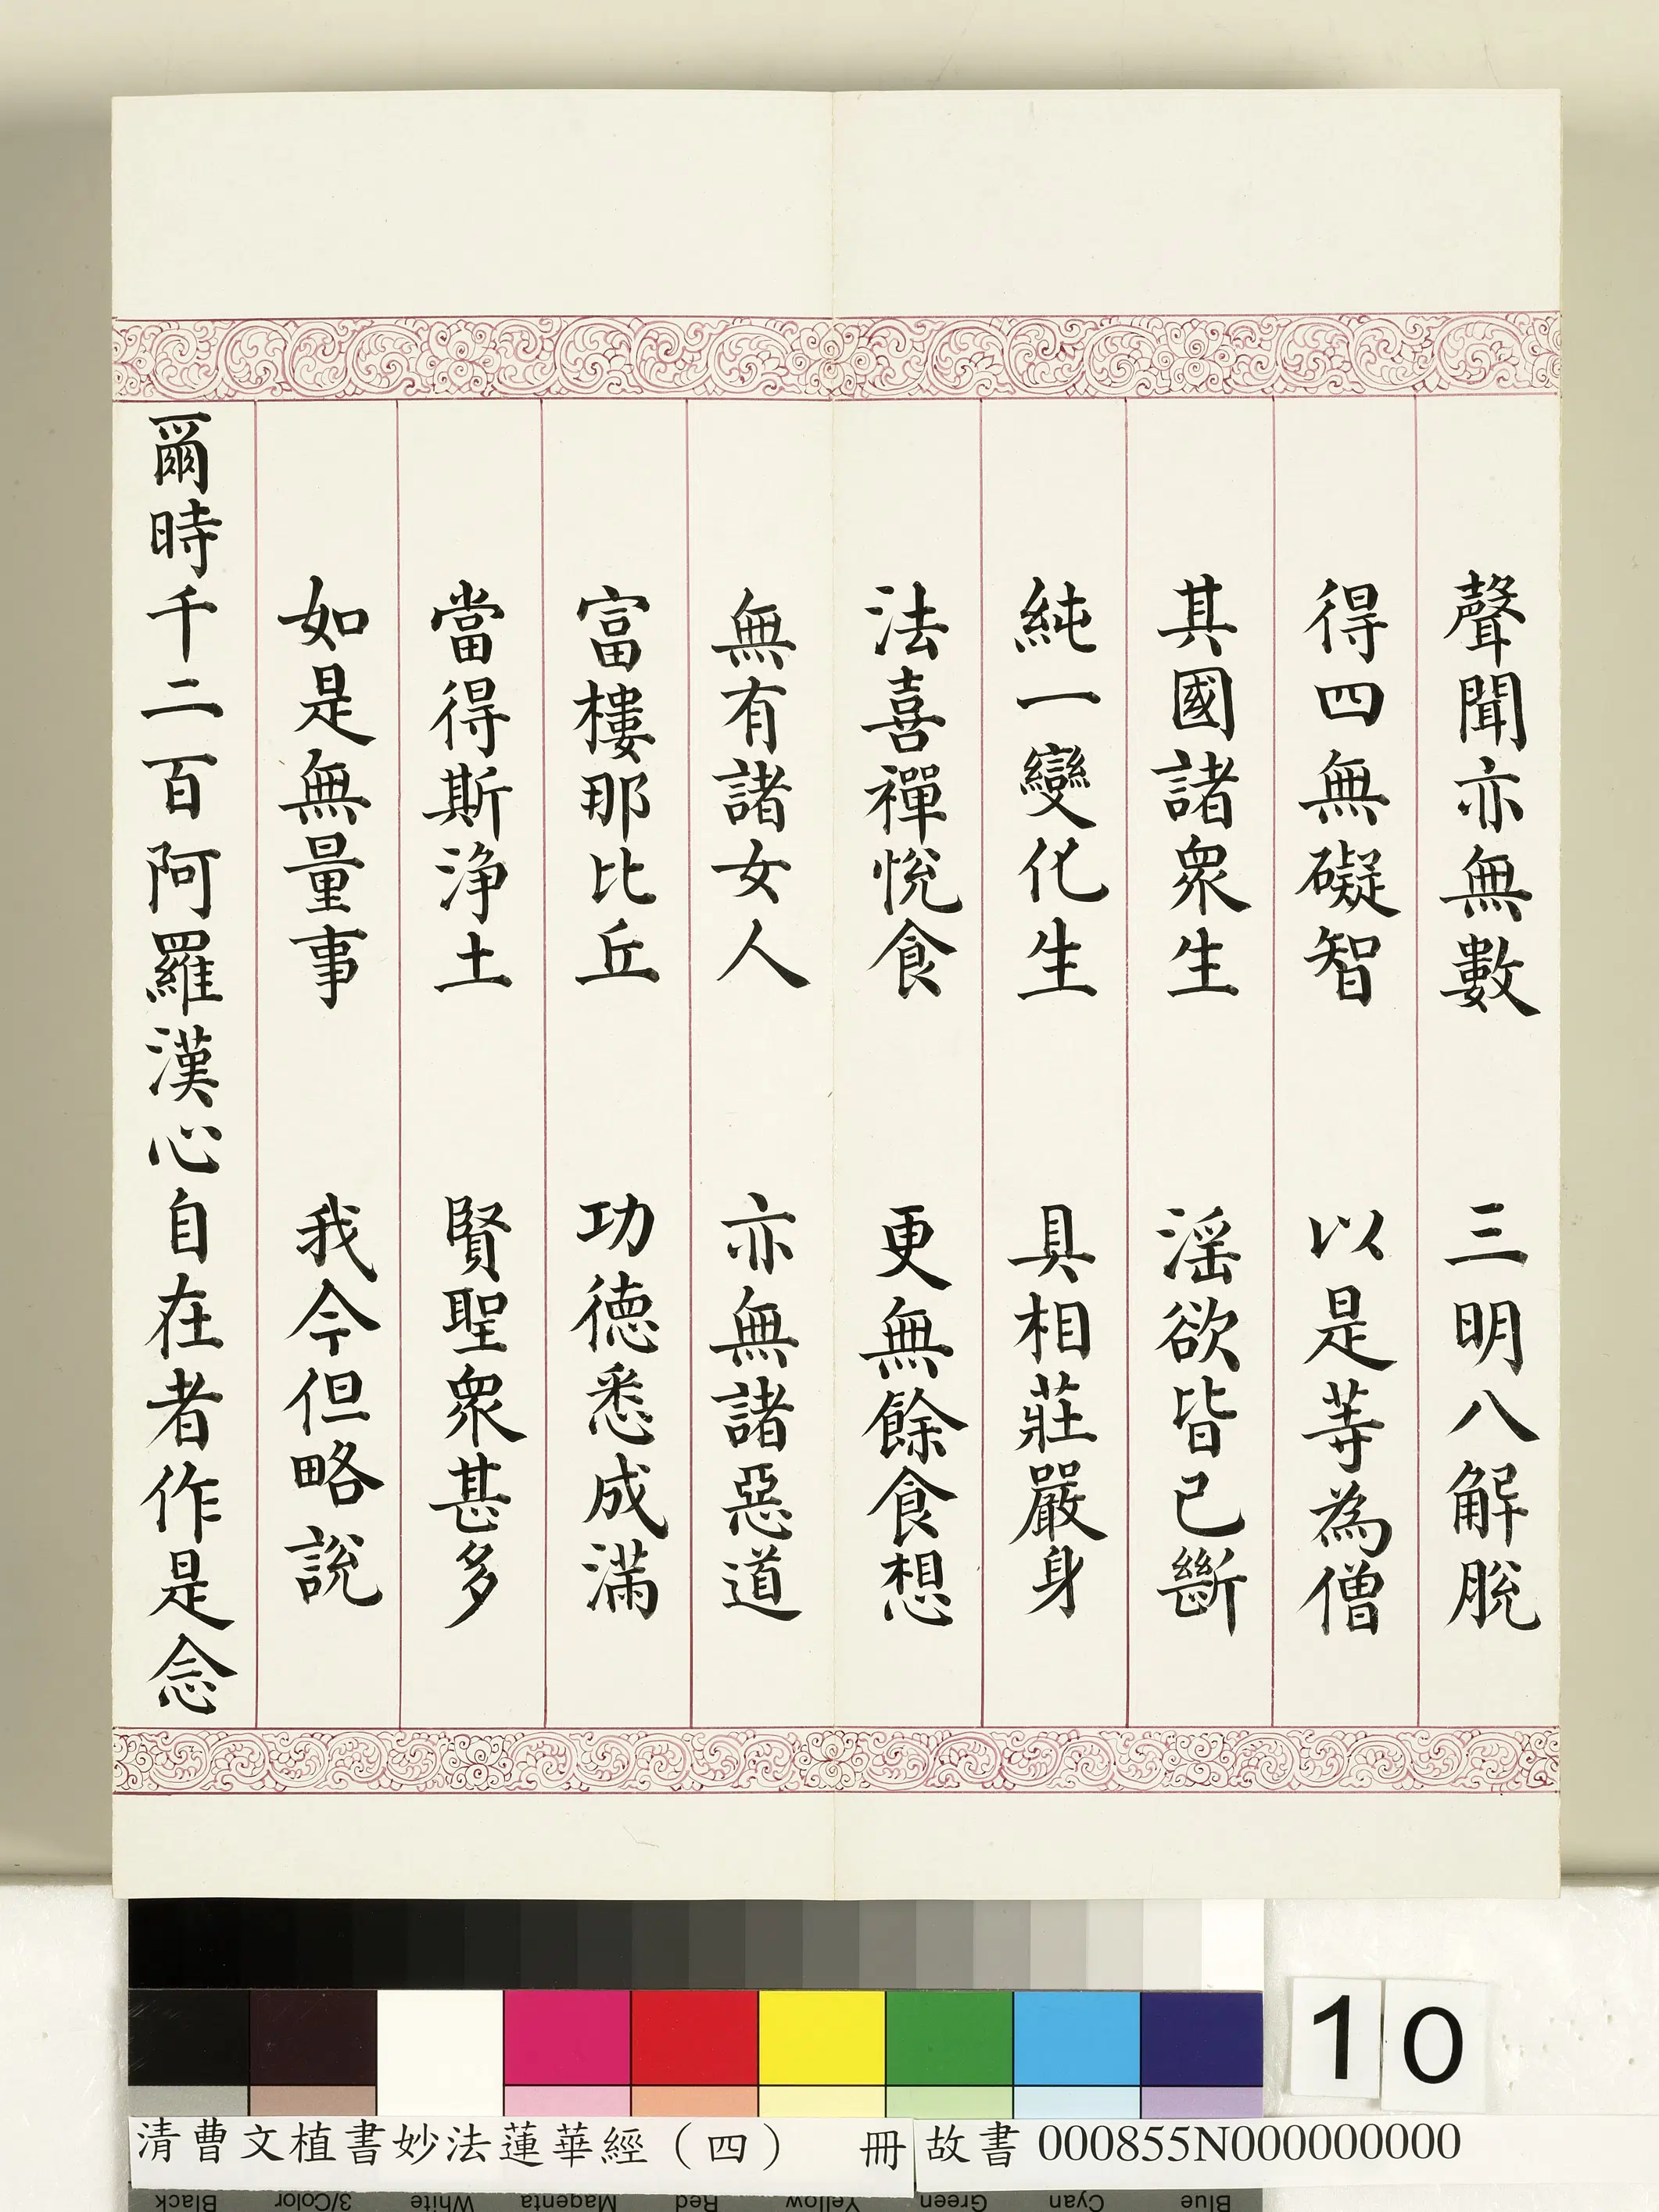 聲聞亦無數　三明八解脫
得四無礙智　以是等為僧
其國諸衆生　淫欲皆已斷
純一變化生　具相莊嚴身
法喜禪悅食　更無餘食想
無有諸女人　亦無諸惡道
富樓那比丘　功德悉成滿
當得斯淨土　賢聖衆甚多
如是無量事　我今但略說
爾時千二百阿羅漢心自在者作是念
10
清曹文植書妙法蓮華經（四）　冊
故書000855N000000000
Black 3/Color White Magenta Red Yellow Green Cyan Blue